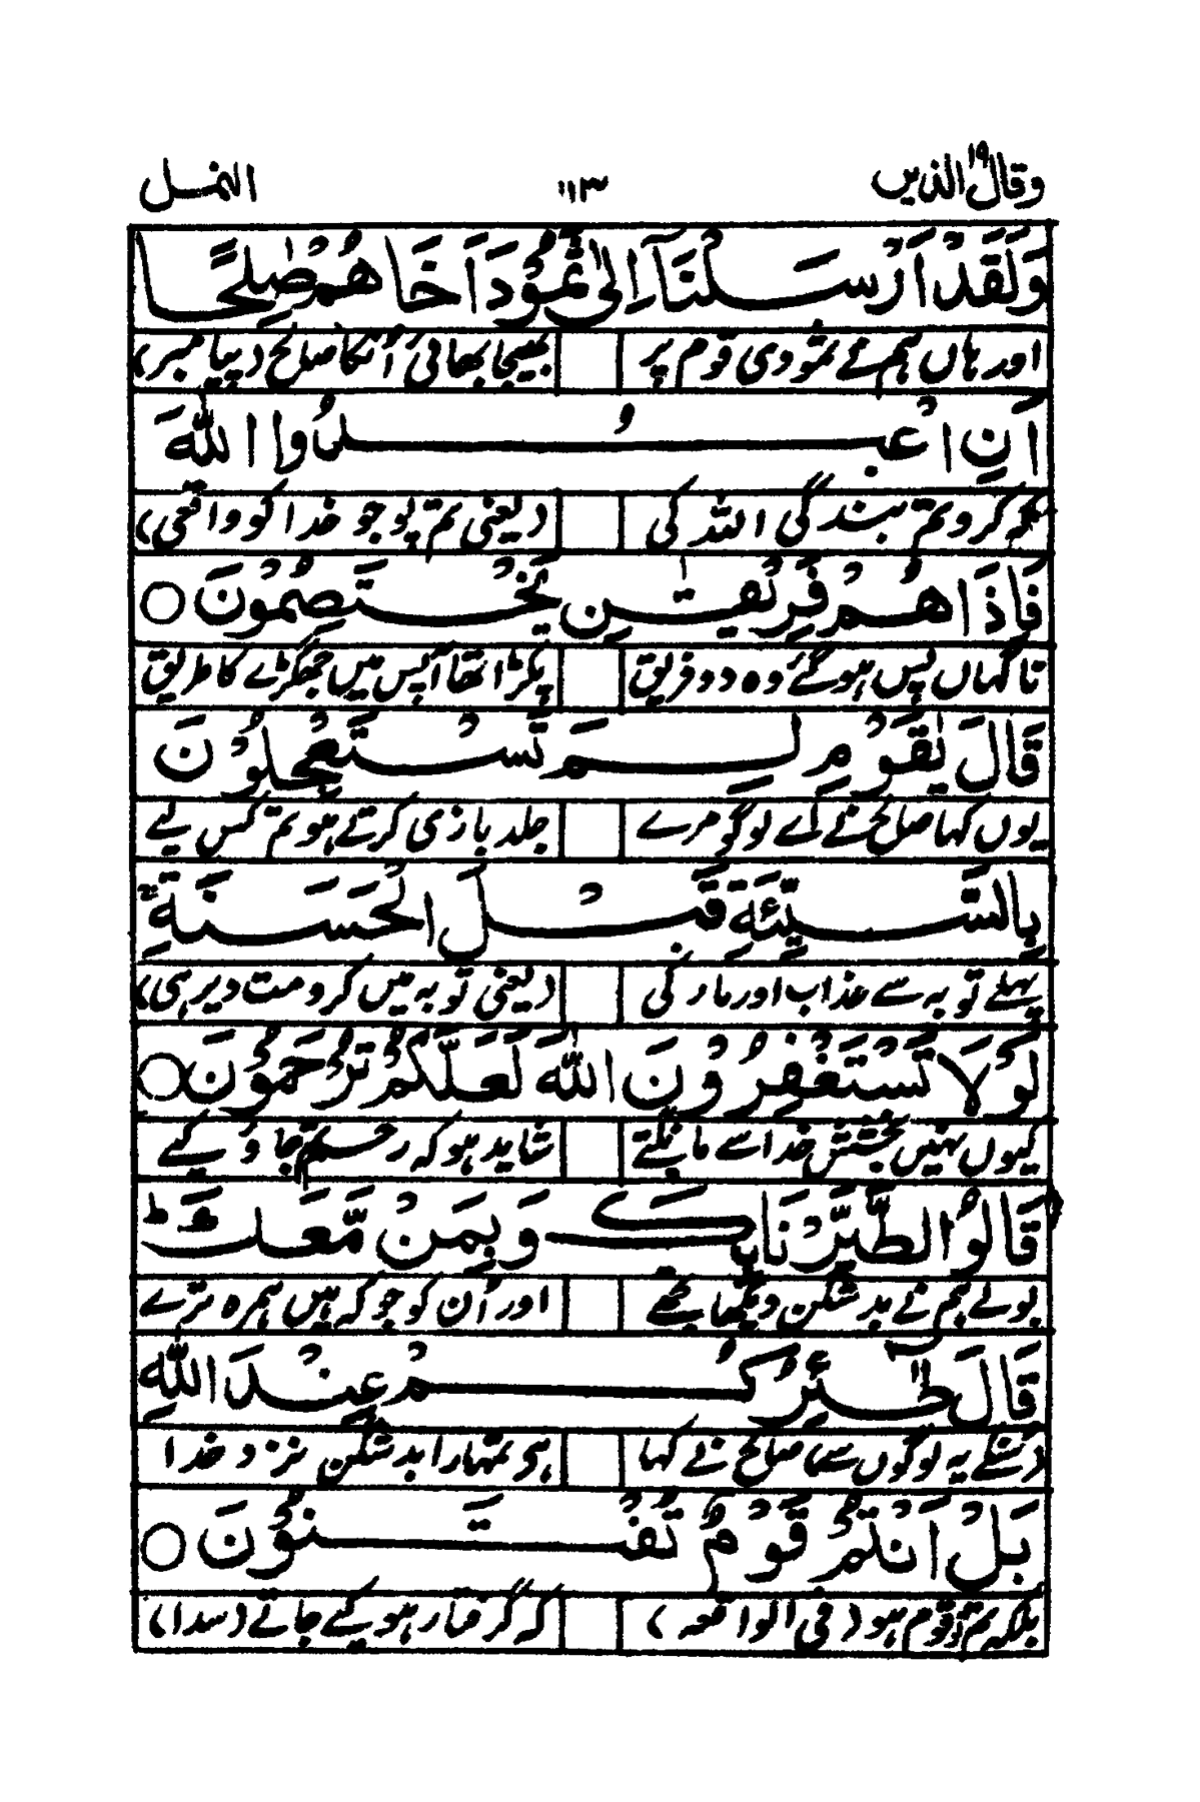 وقال الذین ۱۹ ۱۱۳ النمل
وَلَقَدْ اَرْسَلْنَاۤ اِلٰى ثَمُوْدَ اَخَاهُمْ صٰلِحًا
اور ہاں ہم نے ثمود کی قوم پر بھیجا بھائی اُنکا صالح (پیامبر)
اَنِ اعْبُدُوا اللّٰهَ
کہ کرو تم بندگی اللہ کی (یعنی تم پوجو خدا کو واقعی)
فَاِذَا هُمْ فَرِيْقٰنِ يَخْتَصِمُوْنَ ○
ناگہاں پس ہو گئے وہ دو فریق پکڑا تھا آپس میں جھگڑے کا طریق
قَالَ يٰقَوْمِ لِمَ تَسْتَعْجِلُوْنَ
یوں کہا صالح نے اے لوگو مرے جلد بازی کرتے ہو تم کس لیے
بِالسَّيِّئَةِ قَبْلَ الْحَسَنَةِ ۚ
پہلے توبہ سے عذاب اور مار کی (یعنی توبہ میں کرو مت دیر ہی)
لَوْلَا تَسْتَغْفِرُوْنَ اللّٰهَ لَعَلَّكُمْ تُرْحَمُوْنَ ○
کیوں نہیں بخشش خدا سے مانگتے شاید ہو کہ رحم تم جاؤ کیے
قَالُوا اطَّيَّرْنَا بِكَ وَبِمَنْ مَّعَكَ ؕ
بولے ہم نے بد شگن دیکھا تجھے اور اُن کو جو کہ ہیں ہمرہ ترے
قَالَ طٰٓئِرُكُمْ عِنْدَ اللّٰهِ
(سنکے یہ لوگوں سے) صالح نے کہا ہی تمہارا بد شگن نزد خدا
بَلْ اَنْتُمْ قَوْمٌ تُفْتَنُوْنَ ○
بلکہ تم تو قوم ہو (فی الواقعہ) کہ گرفتار ہو کیے جاتے (سدا)